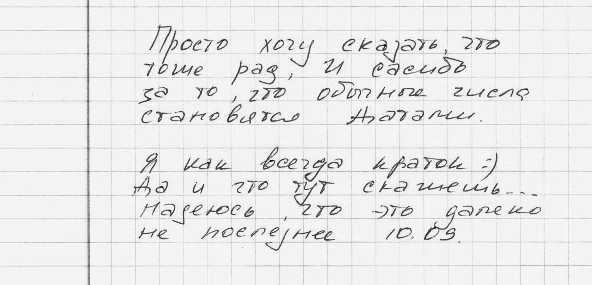 Просто хочу сказать, что
тоже рад, И сасибо
за то, что обычные числа
становятся Датами.
Я как всегда краток :)
Да и что тут скажешь...
Надеюсь, что это далеко
не последнее 10.09.